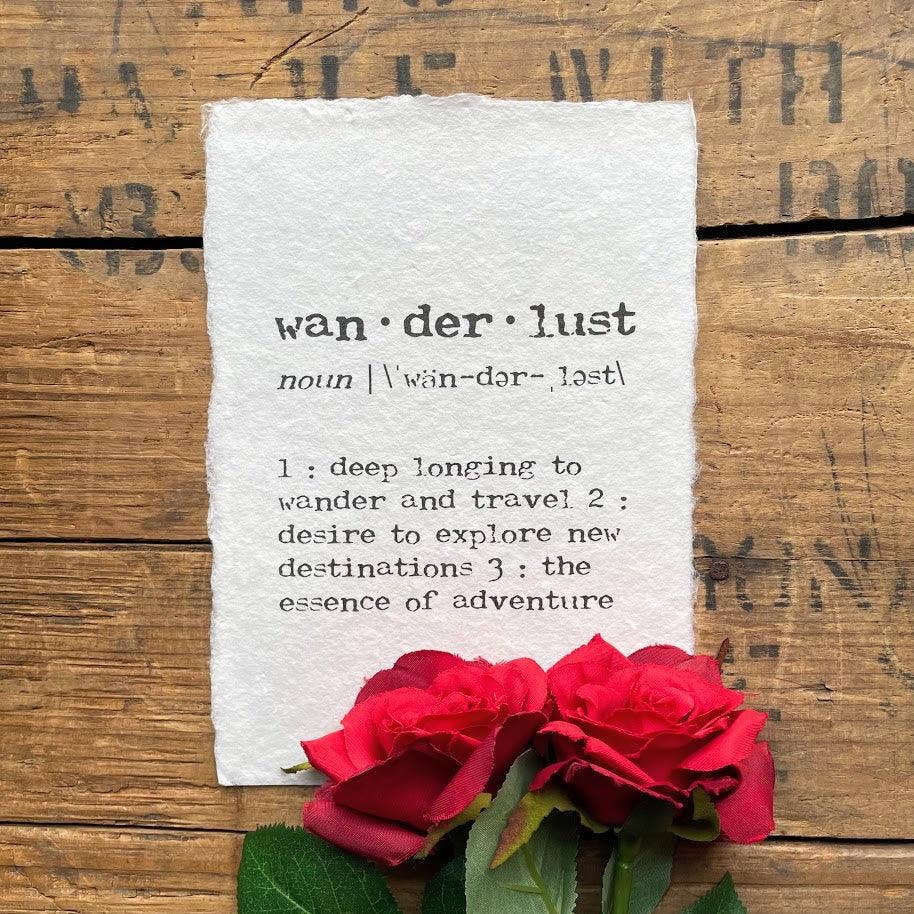 WITH
130
wan·der·lust
noun |\ˈwän-dər-ˌləst\
1 : deep longing to
wander and travel 2 :
desire to explore new
destinations 3 : the
essence of adventure